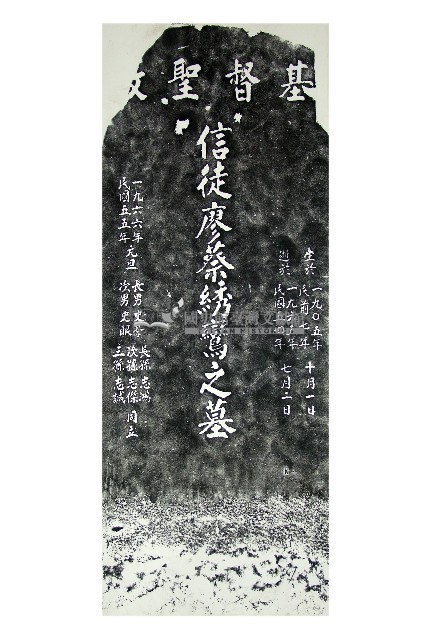 基督聖教
生於 一九〇五年 民前七年 十月一日
逝於 民國 年 七月二日
信徒廖蔡綉鸞之墓
一九六六年 民國五五年 元旦
長男史
次男史眼
長孫志鴻
次孫志傑
三孫志誠
同立